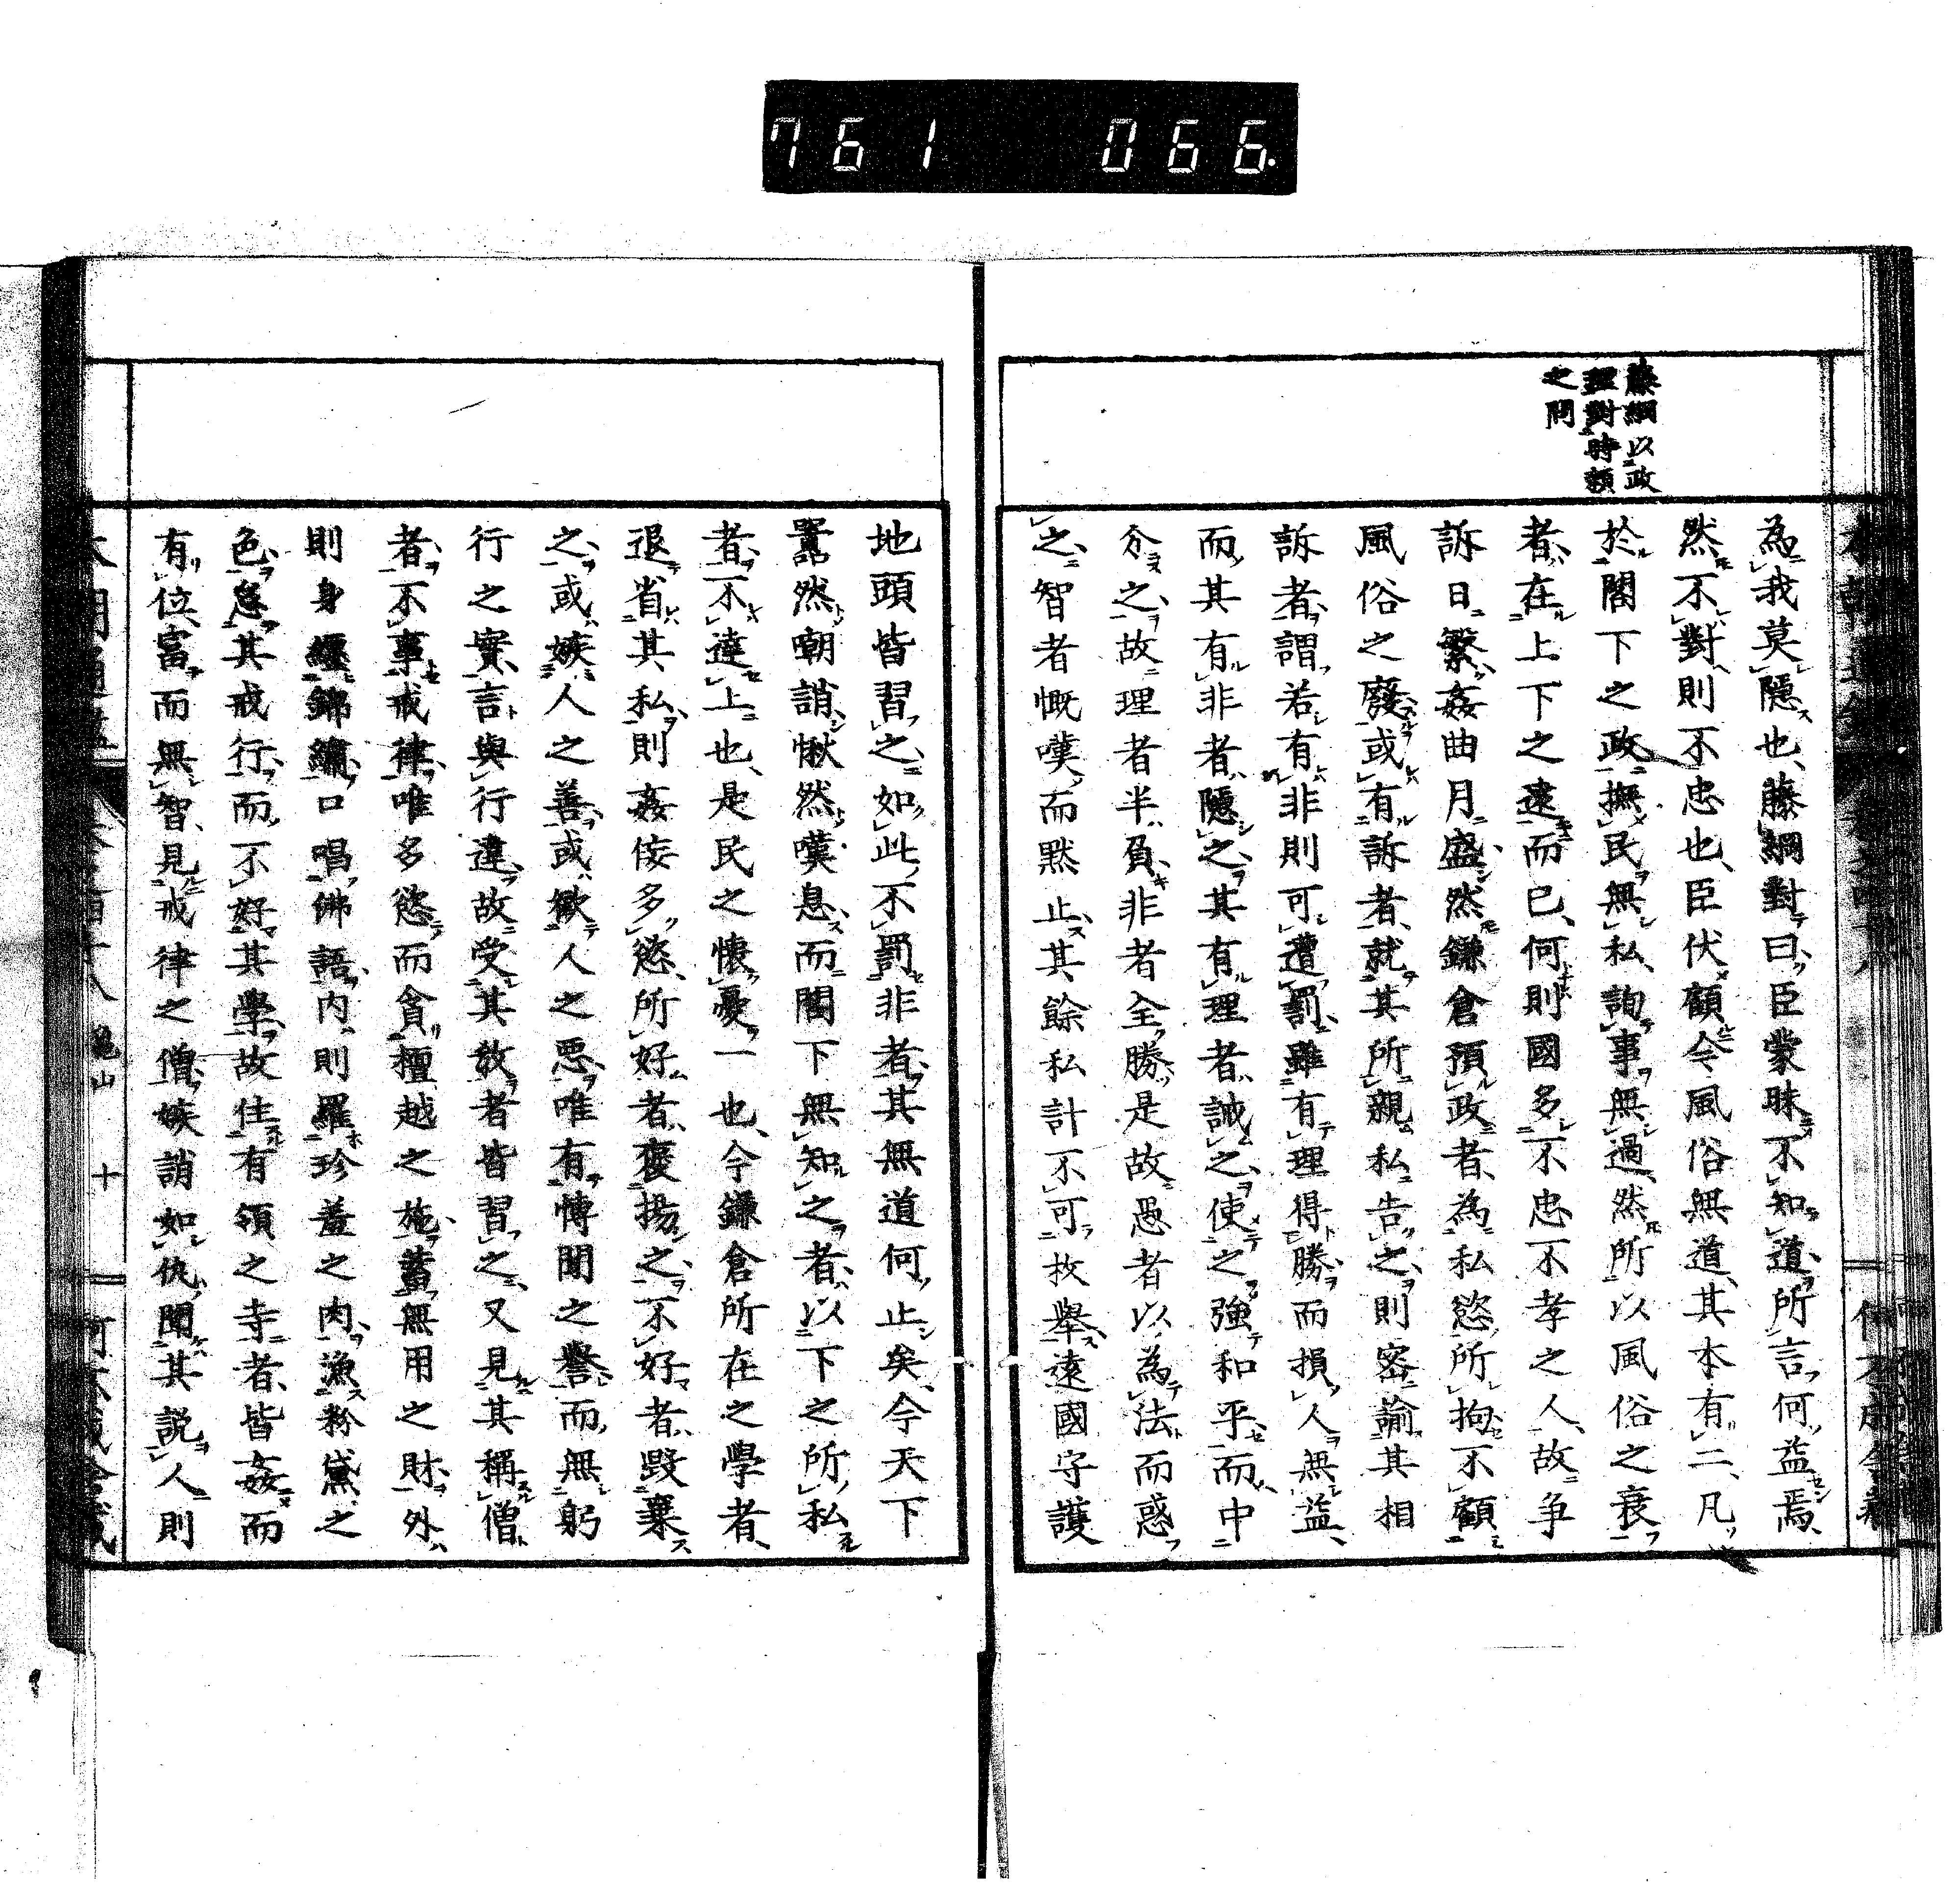 761 066.
藤綱以政
理對時頼
之問
為我莫隱也藤綱對曰臣蒙昧不知道所言何益焉
然不對則不忠也臣伏顧今風俗無道其本有二凡
於閤下之政撫民無私詢事無過然所以風俗之衰
者在上下之遠而已何則國多不忠不孝之人故争
訴日繁姦曲月盛然鎌倉預政者為私慾所拘不顧
風俗之廢或有訴者就其所親私告之則密諭其相
訴者謂若有非則可遭罰雖有理得勝而損人無益
而其有非者隱之其有理者誡之使之強和乎而中
分之故理者半負非者全勝是故愚者以為法而惑
之智者慨嘆而默止其餘私計不可枚舉遠國守護
地頭皆習之如此不罰非者其無道何止矣今天下
囂然嘲誚愀然嘆息而閤下無知之者以下之所私
者不達上也是民之懐憂一也今鎌倉所在之學者
退省其私則姦侫多慾所好者褒揚之不好者毀棄
之或嫉人之善或欲人之惡唯有博聞之譽而無躬
行之實言與行違故受其教者皆習之又見其稱僧
者不事戒律唯多慾而貪檀越之施蓄無用之財外
則身纒錦繍口唱佛語内則羅珍羞之肉漁粉黛之
色怠其戒行而不好其學故住有領之寺者皆姦而
有位富而無智見戒律之僧嫉誚如仇聞其説人則
龜山 十